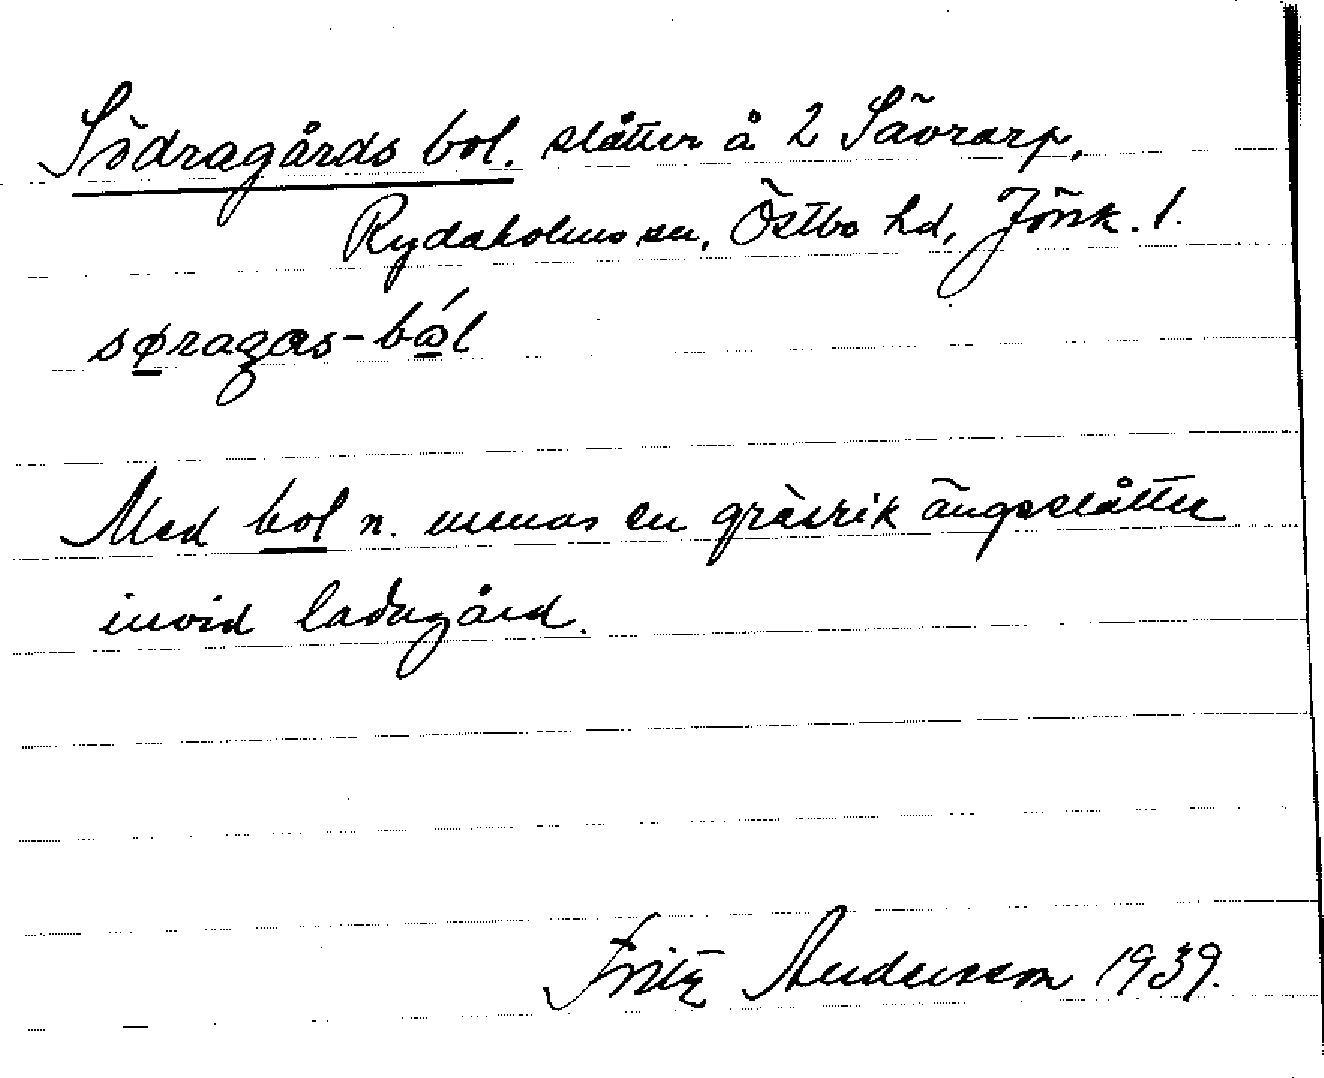 Södragårds bol. slåtter å 2 Sävrarp,
Rydaholms sn, Östbo hd, Jönk. l.
søragas-bål
Med bol n. menas en gräsrik ängsslåtter
invid ladugård.
Fritz Andersson 1939.